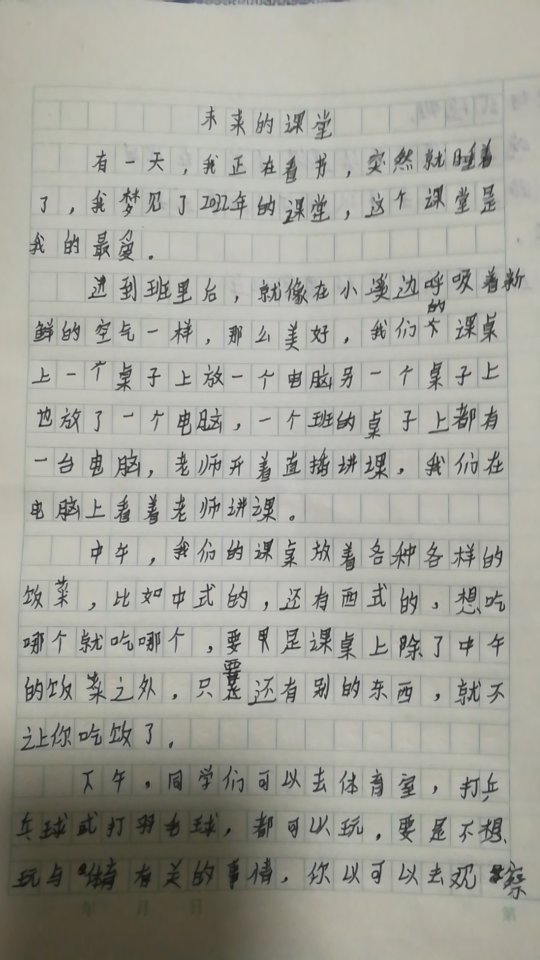 未来的课堂
有一天，我正在看书，突然就睡着
了，我梦见了2022年的课堂，这个课堂是
我的最爱。
进到班里后，就像在小溪边呼吸着新
鲜的空气一样，那么美好，我们的课桌
上一个桌子上放一个电脑另一个桌子上
也放了一个电脑，一个班的桌子上都有
一台电脑，老师开着直播讲课，我们在
电脑上看着老师讲课。
中午，我们的课桌放着各种各样的
饭菜，比如中式的，还有西式的，想吃
哪个就吃哪个，要是课桌上除了中午
的饭菜之外，只要还有别的东西，就不
让你吃饭了。
下午，同学们可以去体育室，打乒
乓球或打羽毛球，都可以玩，要是不想
玩与体育有关的事情，你以可以去观察
年 月 日